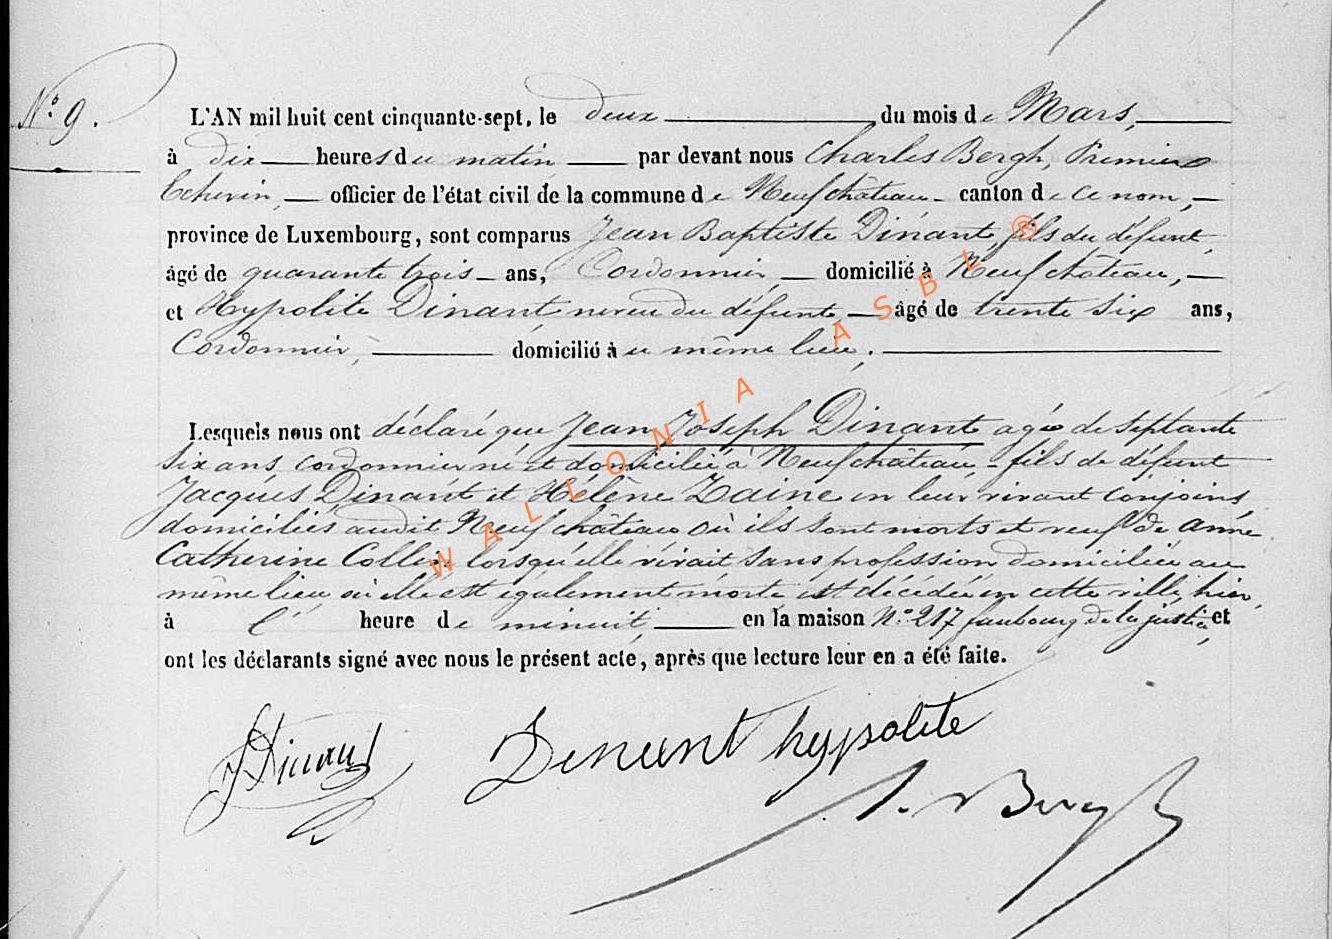 N.º 9.
L'AN mil huit cent cinquante-sept, le deux du mois de Mars,
à dix heures du matin par devant nous Charles Bergh, Premier
Echevin, officier de l'état civil de la commune de Neufchâteau canton de ce nom,
province de Luxembourg, sont comparus Jean Baptiste Dinant, fils du défunt,
âgé de quarante trois ans, Cordonnier, domicilié à Neufchâteau,
et Hypolite Dinant, neveu du défunt, âgé de trente six ans,
Cordonnier, domicilié au même lieu;
Lesquels nous ont déclaré que Jean Joseph Dinant agé de septante
six ans cordonnier né et domicilié à Neufchâteau - fils de défunt
Jacques Dinant et Hélène Zaine en leur vivant conjoins
domiciliés audit Neufchâteau où ils sont morts et veuf de Anne
Catherine Collin lorsqu'elle vivait sans profession domiciliée au
même lieu où elle est également morte est décédé en cette ville, hier,
à l' heure de minuit, en la maison N.º 217 faubourg de la justice, et
ont les déclarants signé avec nous le présent acte, après que lecture leur en a été faite.
J Dinant Dinant hypolite
Bergh
WALLONIA ASBL ®